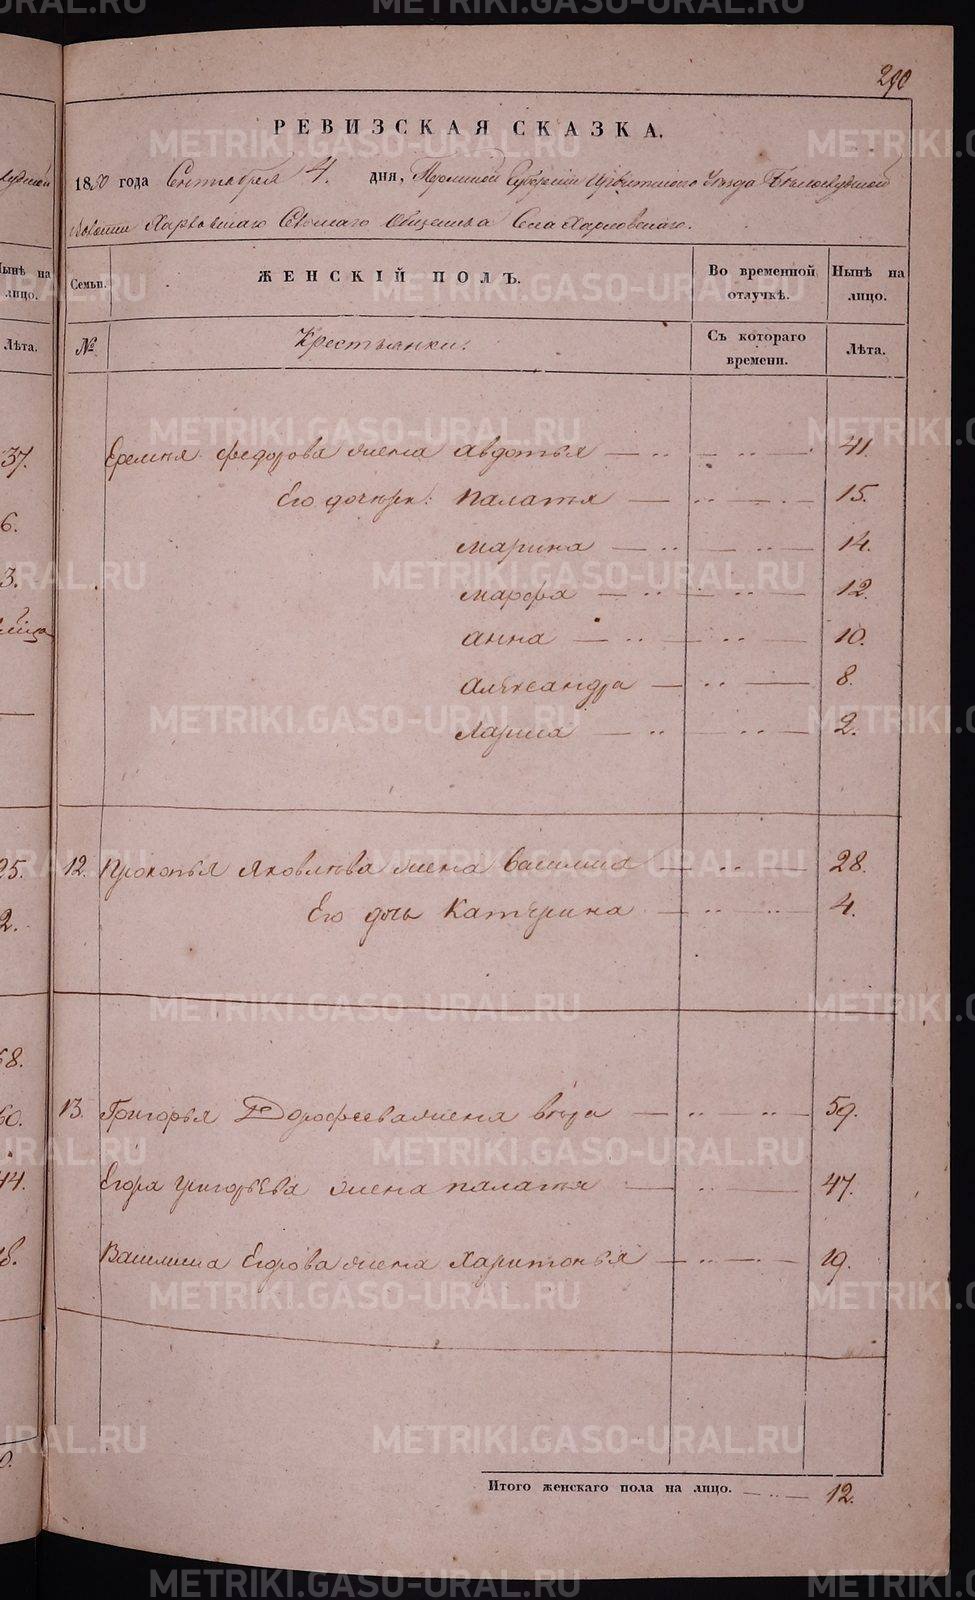 290
РЕВИЗСКАЯ СКАЗКА.
1850 года Сентября 4. дня, Пермской Губернии Ирбитского Уезда Белослудской
волости Харловскаго Сельскаго Общества Села Харловскаго.
Семьи. ЖЕНСКІЙ ПОЛЪ. Во временной отлучкѣ. Нынѣ на лицо.
№ Крестьянки: Съ котораго времени. Лѣта.
Еремея Федорова жена Авдотья 41.
Его дочери: Палатья 15.
Марина 14.
Марфа 12.
Анна 10.
Александра 8.
Лариса 2.
12. Прокопья Яковлева жена Василиса 28.
Его дочь Катерина 4.
13. Григорья Дорофеева жена вѣра 59.
Егора Григорьева жена палатья 47.
Василиса Егорова жена Харитонья 19.
Итого женскаго пола на лицо. 12.
нынѣ на
лицо.
Лѣта.
37.
6.
3.
25.
2.
68.
60.
44.
METRIKI.GASO-URAL.RU